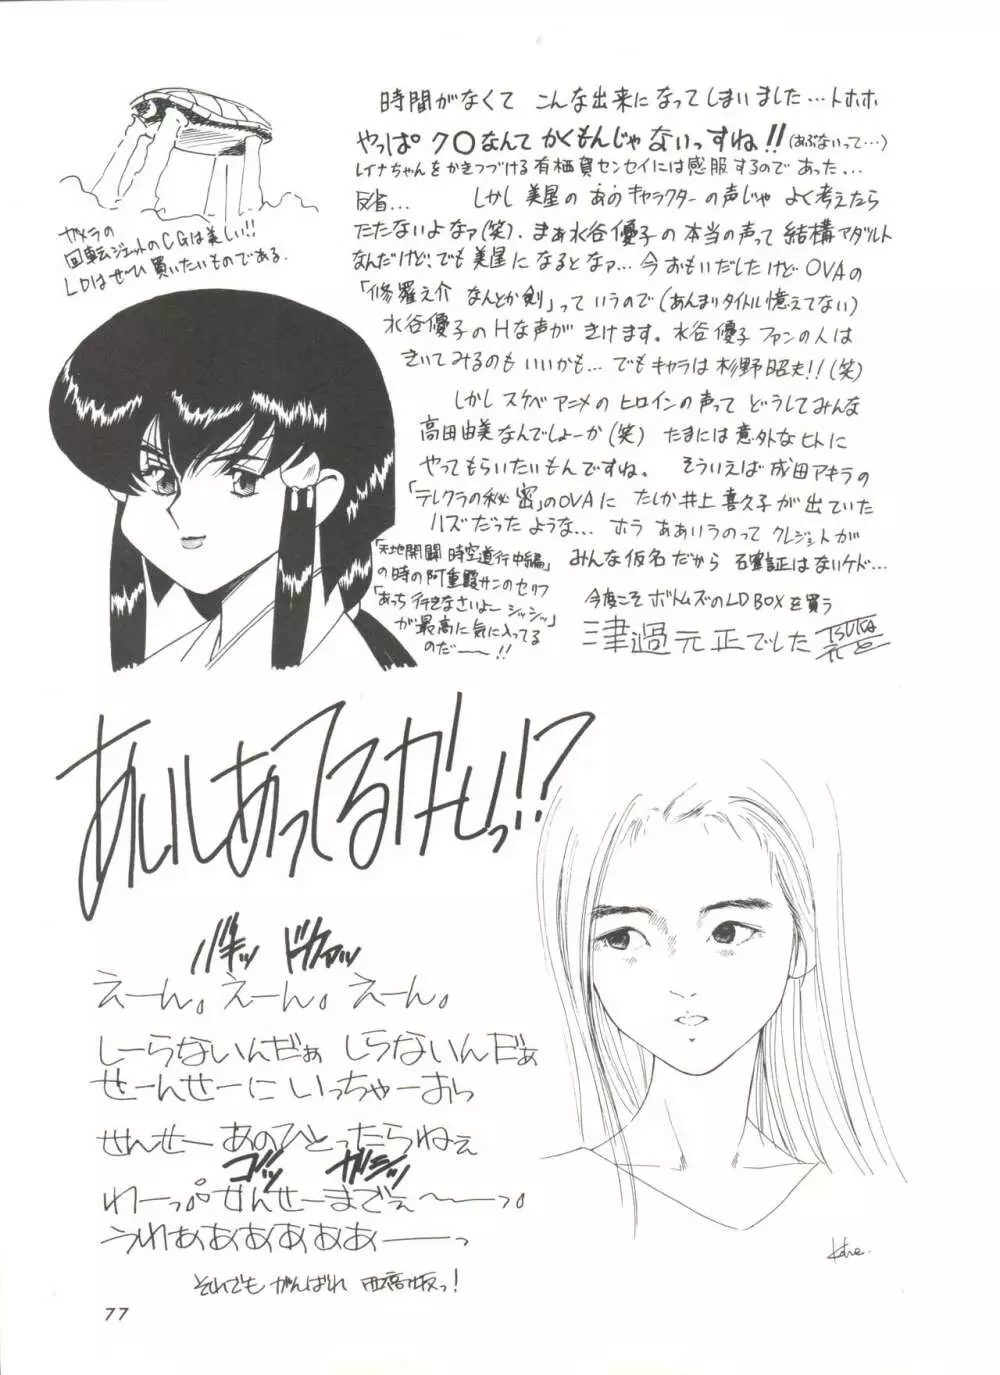 時間がなくて こんな出来になってしまいました…トホホ
やっぱ ク〇なんて かくもんじゃ ないっすね!!(あぶないって…)
レイナちゃんをかきつづける有栖賀センセイには感服するのであった…
反省… しかし 美星の あのキャラクターの声じゃ よく考えたら
たたないよなァ(笑). まぁ水谷優子の本当の声って 結構アダルト
なんだけど、でも 美星に なるとなァ… 今 おもいだしたけど OVAの
「修羅之介 なんとか剣」って いうので(あんまりタイトル憶えてない)
水谷優子のHな声が きけます。水谷優子 ファンの人は
きいてみるのも いいかも… でもキャラは 杉野昭夫!!(笑)
しかし スケベアニメの ヒロインの声って どうしてみんな
高田由美なんでしょーか(笑) たまには 意外なヒトに
やってもらいたいもんですね。 そういえば 成田アキラの
「テレクラの秘密」のOVAに たしか 井上喜久子が 出ていた
ハズだったような… ホラ ああいうのって クレジットが
みんな仮名だから 確証はないケド…
今度こそ ボトムズのLD BOXを買う
津過元正でした
ガメラの
回転ジェットのCGは美しい!!
LDはぜひ 買いたいものである.
「天地開闢 時空道行中編」
の時の阿重霞サンのセリフ
「あっち 行きなさいよー シッシッ」
が最高に気に入ってる
のだ——!!
あいしあってるかーいっ!?
バキッ ドカァッ
えーん。えーん。えーん。
しーらないんだぁ しらないんだぁ
せーんせーに いっちゃーおっ
せんせー あのひとったらねぇ
ゴッ ガシッ
わーっ。せんせーまでぇ〜——っ。
うわぁああああああ——っ
それでも がんばれ 西高版っ!
77